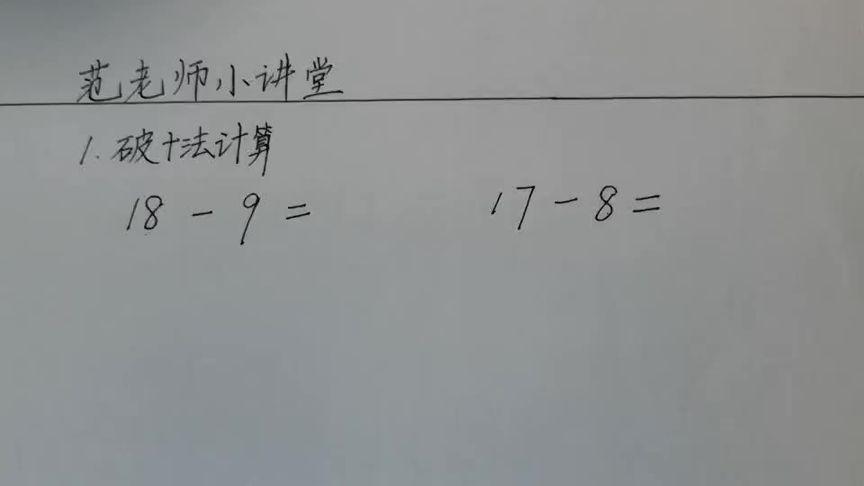 范老师小讲堂
1. 破十法计算
18 - 9 = 17 - 8 =